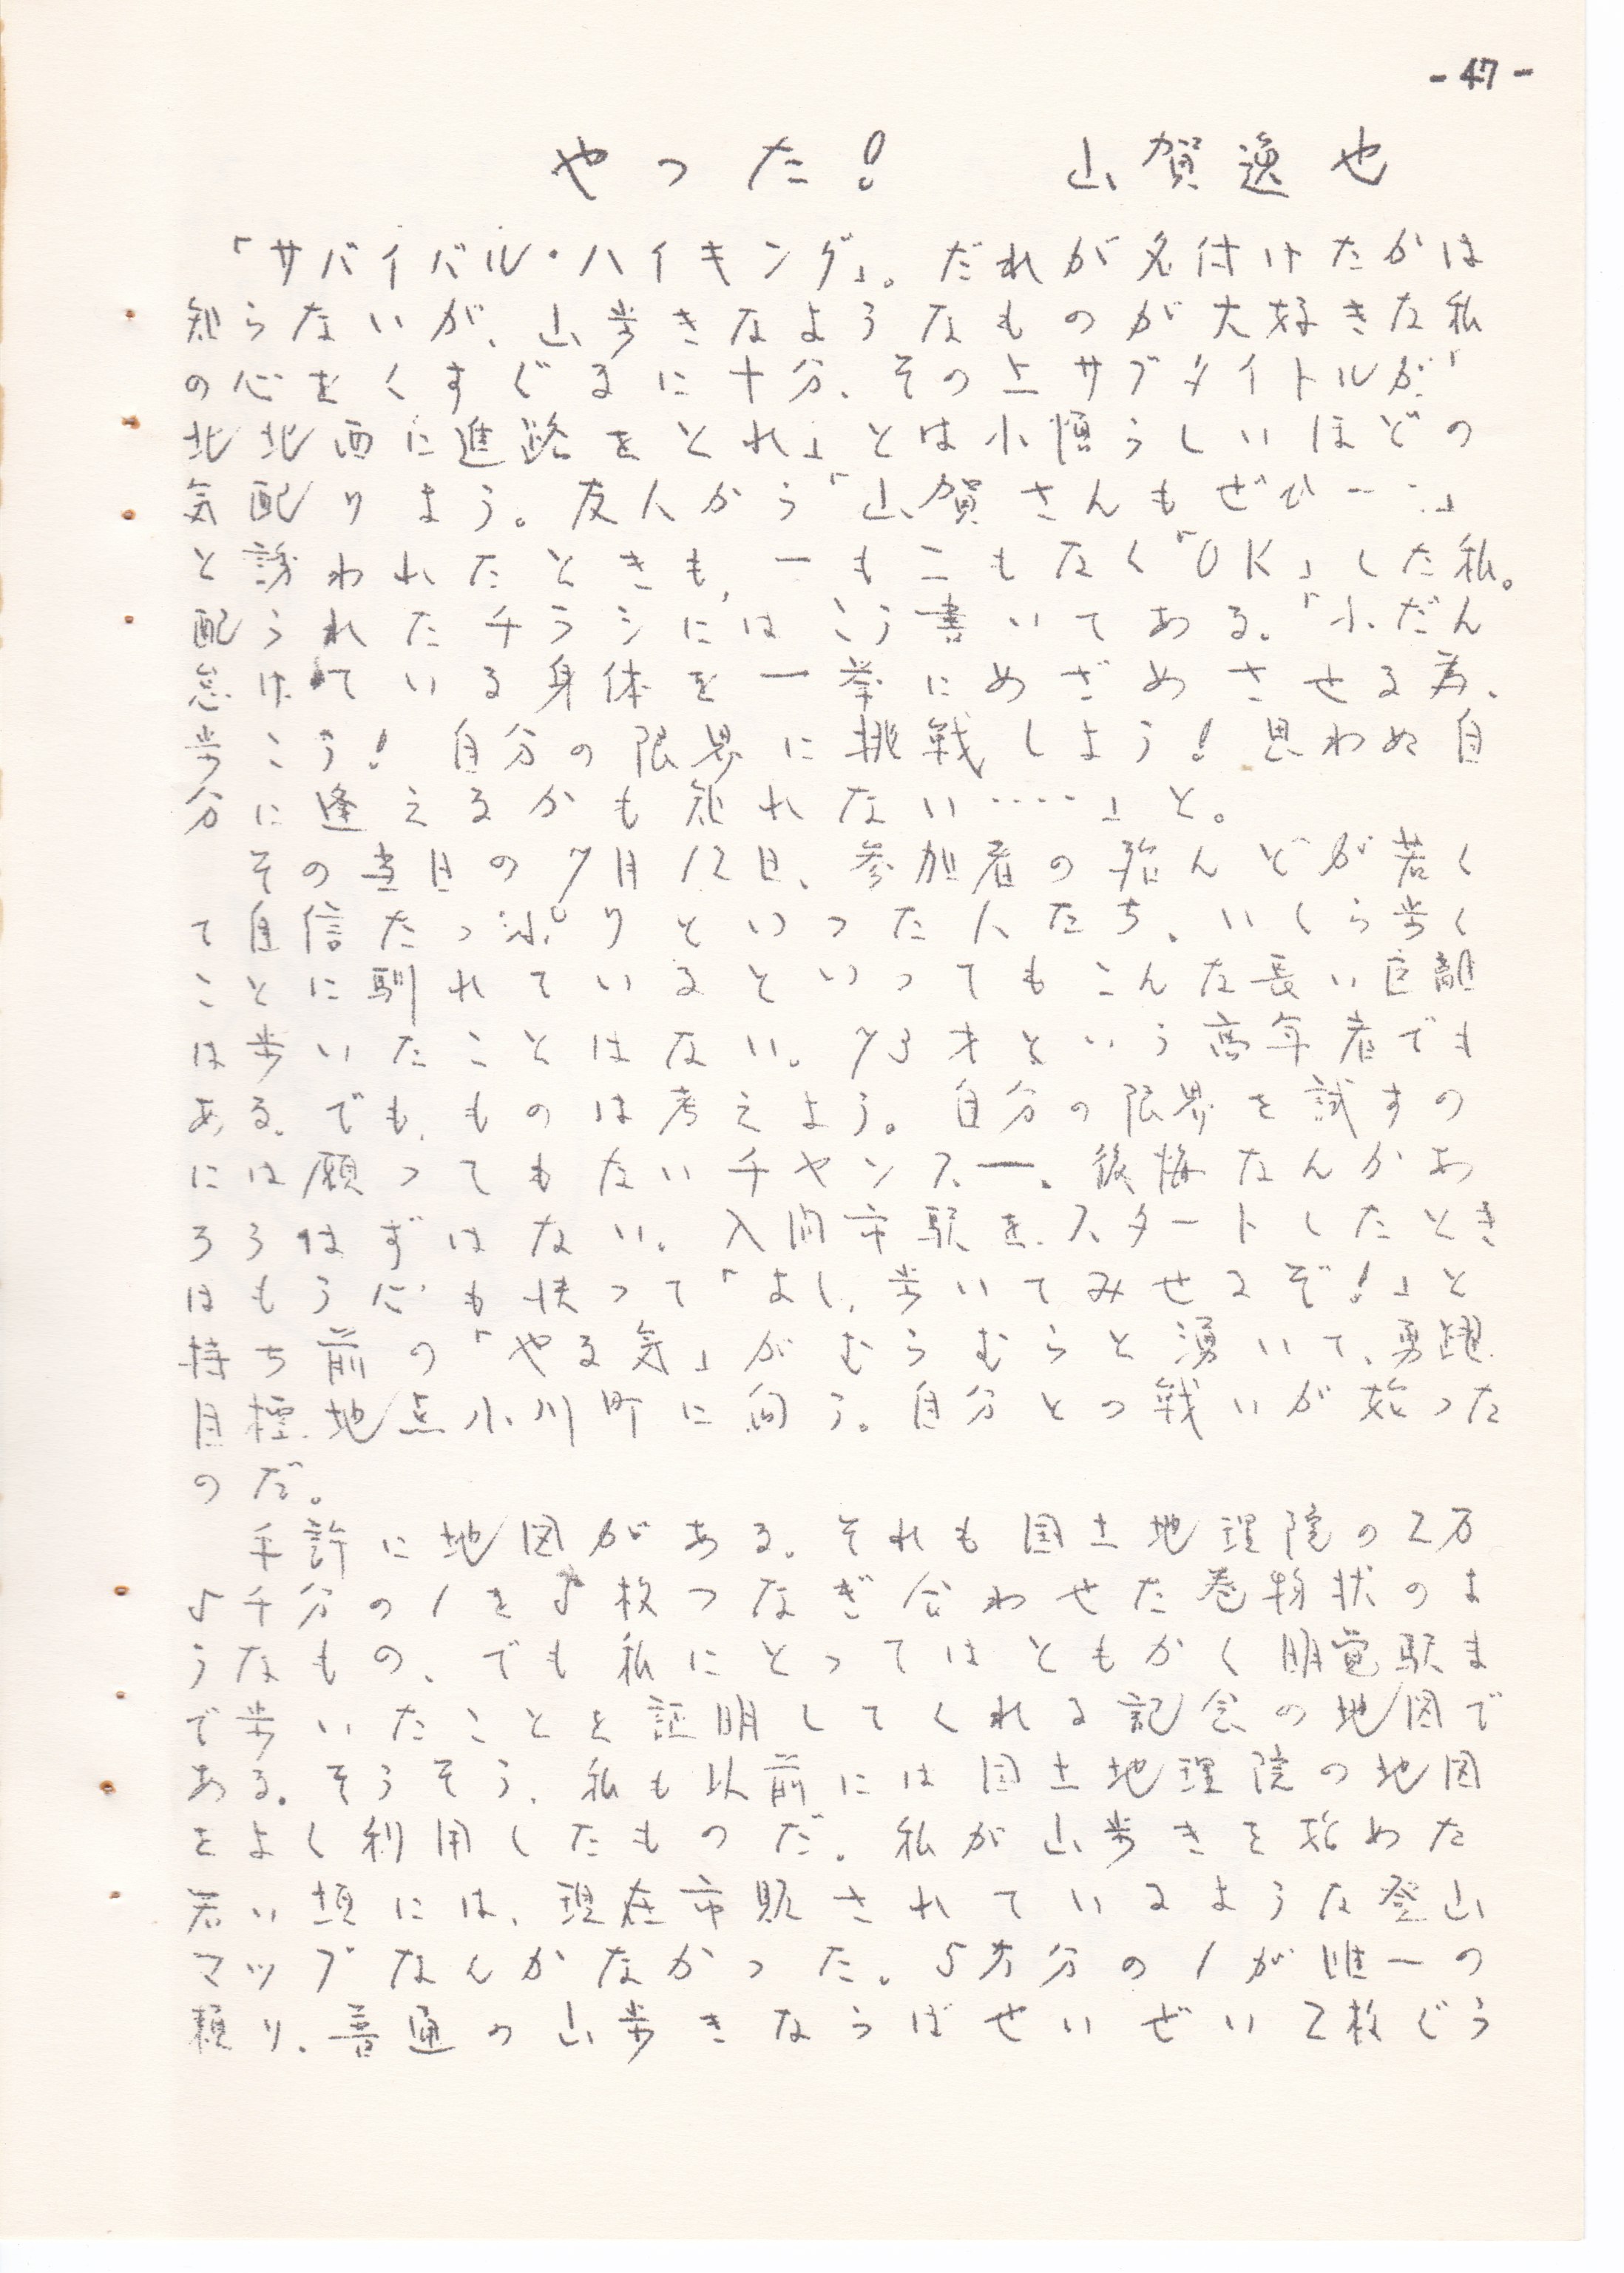 - 47 -
やった！　山賀逸也
「サバイバル・ハイキング」。だれが名付けたかは
知らないが、山歩きなようなものが大好きな私
の心をくすぐるに十分、その上サブタイトルが「
北北西に進路をとれ」とは小憎らしいほどの
気配りよう。友人から「山賀さんもぜひ……」
と誘われたときも、一も二もなく「OK」した私。
配られたチラシにはこう書いてある。「ふだん
怠けている身体を一挙にめざめさせる為、
歩こう！　自分の限界に挑戦しよう！　思わぬ自
分に逢えるかも知れない……」と。
その当日の7月12日、参加者の殆んどが若く
て自信たっぷりといった人たち。いくら歩く
ことに馴れているといってもこんな長い距離
は歩いたことはない。73才という高年者でも
ある。でも、ものは考えよう。自分の限界を試すの
には願ってもないチャンスー。後悔なんかあ
ろうはずはない。入間市駅をスタートしたとき
はもう心も決って「よし、歩いてみせるぞ！」と
持ち前の「やる気」がむらむらと湧いて、勇躍
目標地点小川町に向う。自分との戦いが始った
のだ。
手許に地図がある。それも国土地理院の2万
5千分の1を5枚つなぎ合わせた巻物状のよ
うなもの、でも私にとってはともかく明覚駅ま
で歩いたことを証明してくれる記念の地図で
ある。そうそう、私も以前には国土地理院の地図
をよく利用したものだ。私が山歩きを始めた
若い頃には、現在市販されているような登山
マップなんかなかった。5万分の1が唯一の
頼り、普通の山歩きならばせいぜい2枚ぐら